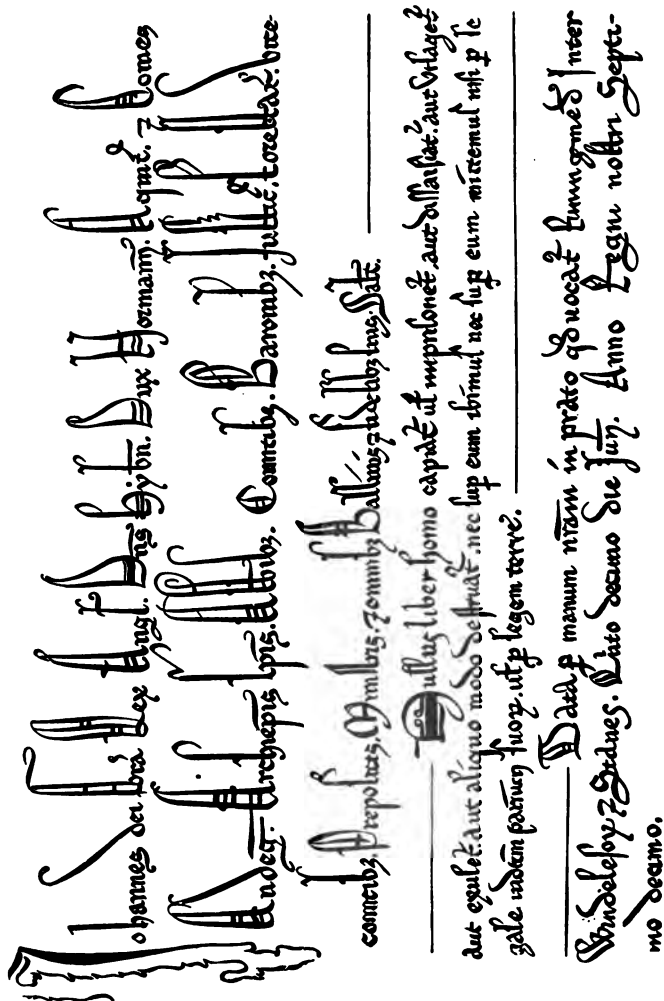 Johannes dei grā Rex Angl. Dn̄s Hybn. Dux Normann̄. Aquit̄. ⁊ Comes
Andeḡ. Archiep̄is Ep̄is. Abb̄ibꝫ. Comitibꝫ. Baronibꝫ. Justic̄. Forestar̄. Vice-
comitibꝫ. Prepositis. Ministris. ⁊ omnibꝫ Ballivis ⁊ fidelibꝫ suis. Salt̄.
Nullus liber homo capiat̄ ul̄ imprisonet̄, aut dissaisiat̄. aut utlaget̄
aut exulet̄ aut aliquo modo destruat̄. nec sup̄ eum ibimus nec sup̄ eum mittemus nisi ꝑ le
gale iudiciū parium suoꝝ. ul̄ ꝑ legem terre.
Data ꝑ manum nr̄am in prato qd̄ uocat̄ Runingmed̄ Inter
Windelesoꝝ ⁊ Stanes. Quinto decimo die Jun̄. Anno Regni nostri Septi-
mo decimo.